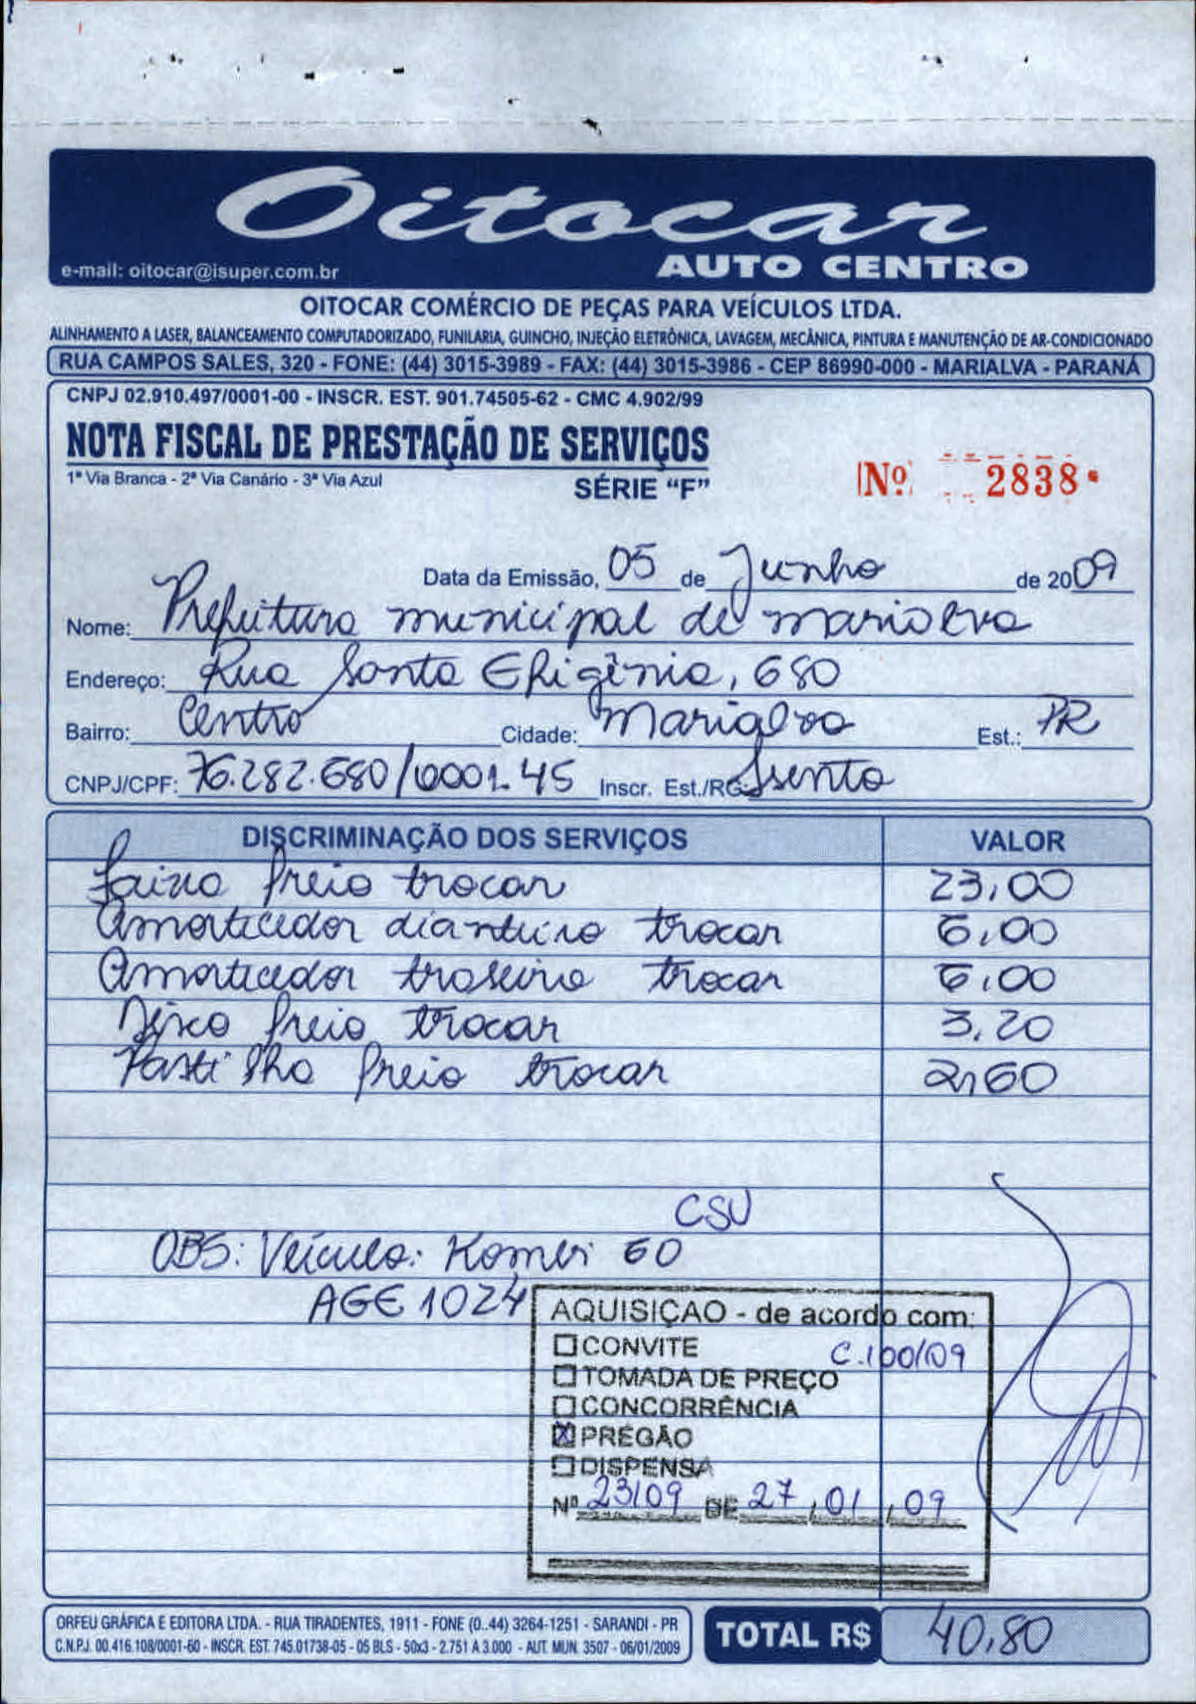 Oitocar
AUTO CENTRO
e-mail: oitocar@isuper.com.br
OITOCAR COMÉRCIO DE PEÇAS PARA VEÍCULOS LTDA.
ALINHAMENTO A LASER, BALANCEAMENTO COMPUTADORIZADO, FUNILARIA, GUINCHO, INJEÇÃO ELETRÔNICA, LAVAGEM, MECÂNICA, PINTURA E MANUTENÇÃO DE AR-CONDICIONADO
RUA CAMPOS SALES, 320 - FONE: (44) 3015-3989 - FAX: (44) 3015-3986 - CEP 86990-000 - MARIALVA - PARANÁ
CNPJ 02.910.497/0001-00 - INSCR. EST. 901.74505-62 - CMC 4.902/99
NOTA FISCAL DE PRESTAÇÃO DE SERVIÇOS
1ª Via Branca - 2ª Via Canário - 3ª Via Azul
SÉRIE "F"
Nº 2838
Data da Emissão, 05 de Junho de 2009
Nome: Prefeitura municipal de marialva
Endereço: Rua Santa Efigênia, 680
Bairro: Centro Cidade: Marialva Est.: PR
CNPJ/CPF: 76.282.680/0001-45 Inscr. Est./RG: Isento
DISCRIMINAÇÃO DOS SERVIÇOS VALOR
freio trocar 23,00
Amortecedor dianteiro trocar 6,00
Amortecedor traseiro trocar 6,00
Disco freio trocar 3,20
Pastilha freio trocar 2,60
CSU
OBS: Veículo: Kombi 60
AGE 1024
AQUISIÇAO - de acordo com:
CONVITE C.100/09
TOMADA DE PREÇO
CONCORRÊNCIA
X PREGÃO
DISPENSA
Nº 23/09 DE 27,01,09
ORFEU GRÁFICA E EDITORA LTDA. - RUA TIRADENTES, 1911 - FONE (0..44) 3264-1251 - SARANDI - PR
C.N.P.J. 00.416.108/0001-60 - INSCR. EST. 745.01738-05 - 05 BLS - 50x3 - 2.751 A 3.000 - AUT. MUN. 3507 - 06/01/2009
TOTAL R$ 40,80